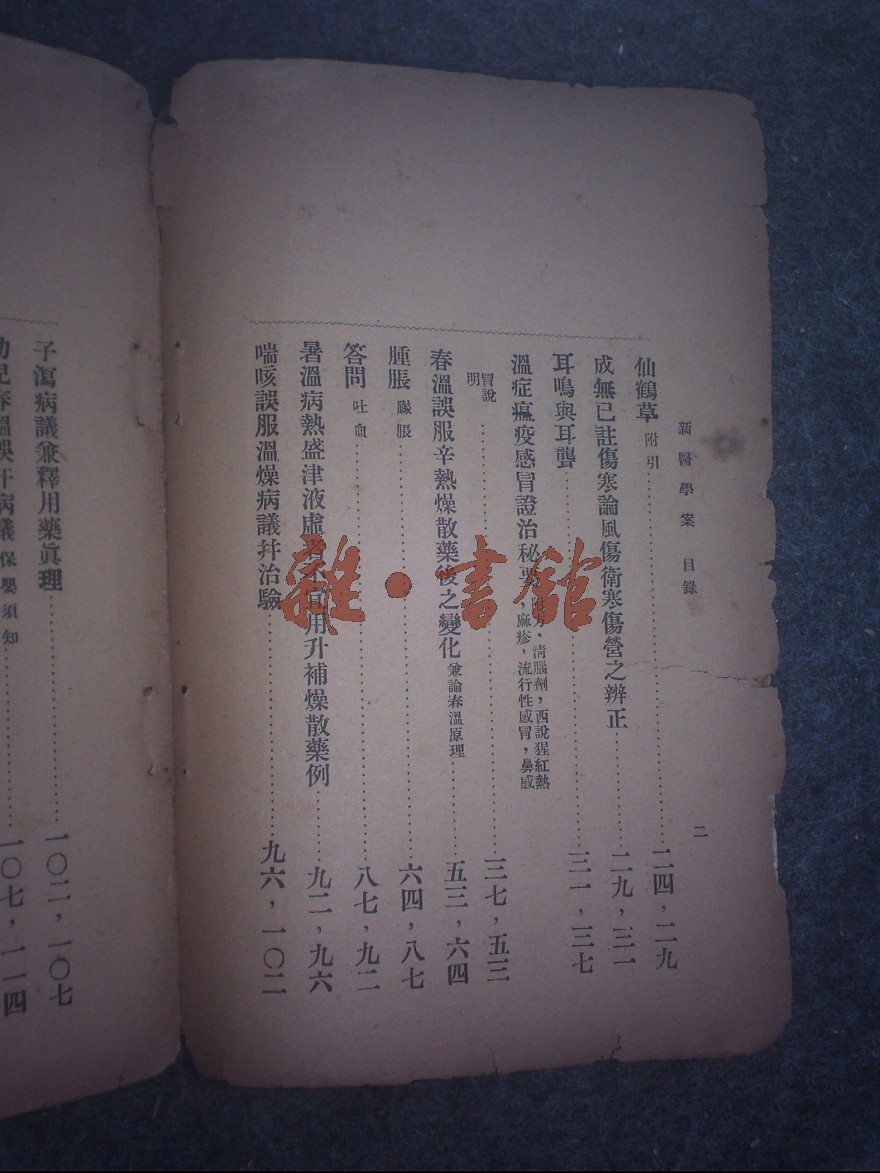 新醫學案 目錄 二
仙鶴草 附引 二四，二九
成無已註傷寒論風傷衛寒傷營之辨正 二九，三一
耳鳴與耳聾 三一，三七
溫症瘟疫感冒證治秘要 清腦劑，西說猩紅熱，麻疹，流行性感冒，鼻感
冒說明 三七，五三
春溫誤服辛熱燥散藥後之變化 兼論春溫原理 五三，六四
腫脹 臌脹 六四，八七
答問 吐血 八七，九二
暑溫病熱盛津液虛者不宜用升補燥散藥例 九二，九六
喘咳誤服溫燥病議幷治驗 九六，一〇二
子瀉病議兼釋用藥眞理 一〇二，一〇七
幼兒春溫誤汗病議 保嬰須知 一〇七，一一四
雜·書舘